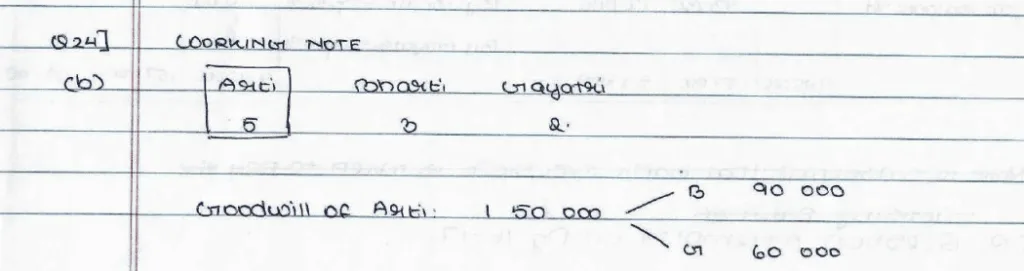 Q24] WORKING NOTE
(b) Arti Bharti Gayatri
5 3 2.
B 90 000
Goodwill of Arti: 1 50 000
G 60 000